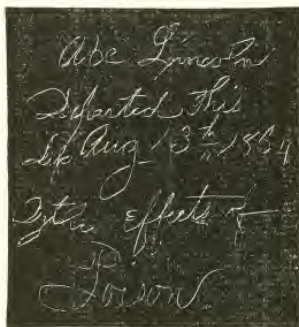 Abe Lincoln
Departed This
Life Aug 13th 1864
By the effects of
Poison.